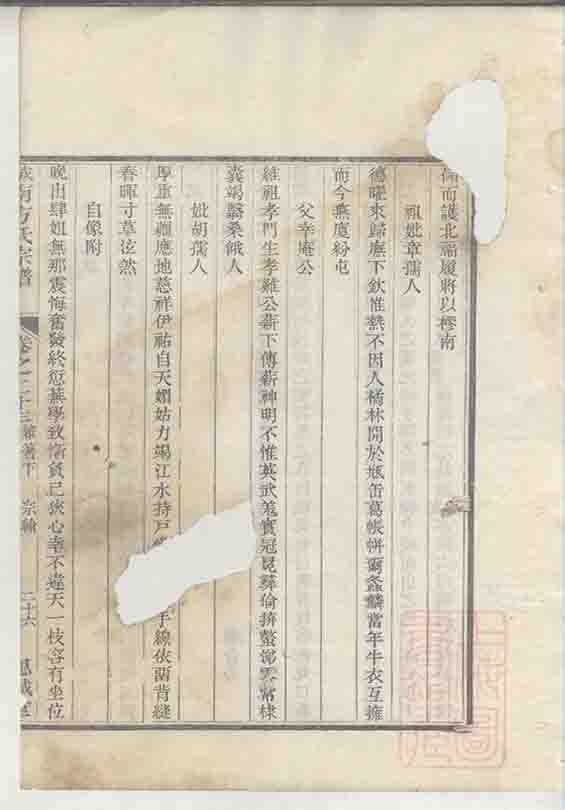 而護北福履將以樛南
祖妣章孺人
德曜來歸廡下欽惟熱不因人橘林開於瓶缶葛帳帡爾螽麟當年牛衣互擁
而今燕廈紛屯
父幸庵公
維祖孝門生孝維公薪下傳薪神明不惟英武篤實冠昆彝倫擠螯常棣
囊竭翳桑餓人
妣胡孺人
厚重無疆應地慈祥伊祐自天嫺姑力竭江水持戶手線依前背縫
春暉寸草泫然
自像附
晚出肆姐無那震悔奮發終愆蕪學致負己狹心幸不違天一枝容有坐位
城南方氏宗譜 卷之二十三 雜著下 宗翰 二十六